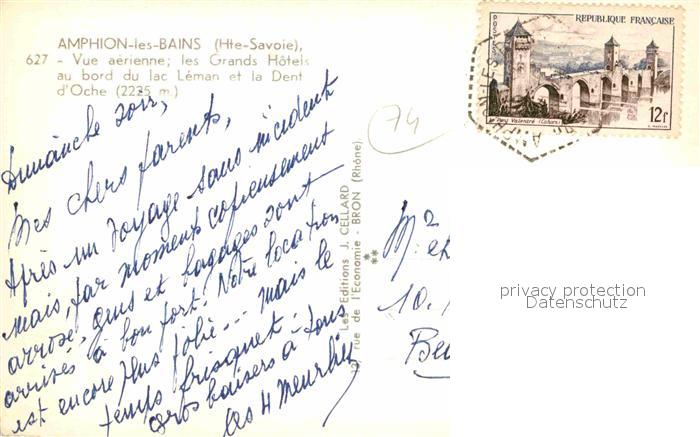 AMPHION-les-BAINS (Hte-Savoie),
627 - Vue aérienne; les Grands Hôtels
au bord du lac Léman et la Dent
d'Oche (2225 m.)
Dimanche soir,
Mes chers parents,
Après un voyage sans incident
mais, par moments copieusement
arrosé, gens et bagages sont
arrivés à bon port. Notre location
est encore plus jolie... mais le
temps frisquet.
Gros baisers à tous
les 4
74
Les Editions J. CELLARD
rue de l'Economie - BRON (Rhône)
REPUBLIQUE FRANÇAISE
POSTES
Le Pont Valentré (Cahors)
12f
AMPHION-LES-
M
M. et
10,
privacy protection
Datenschutz